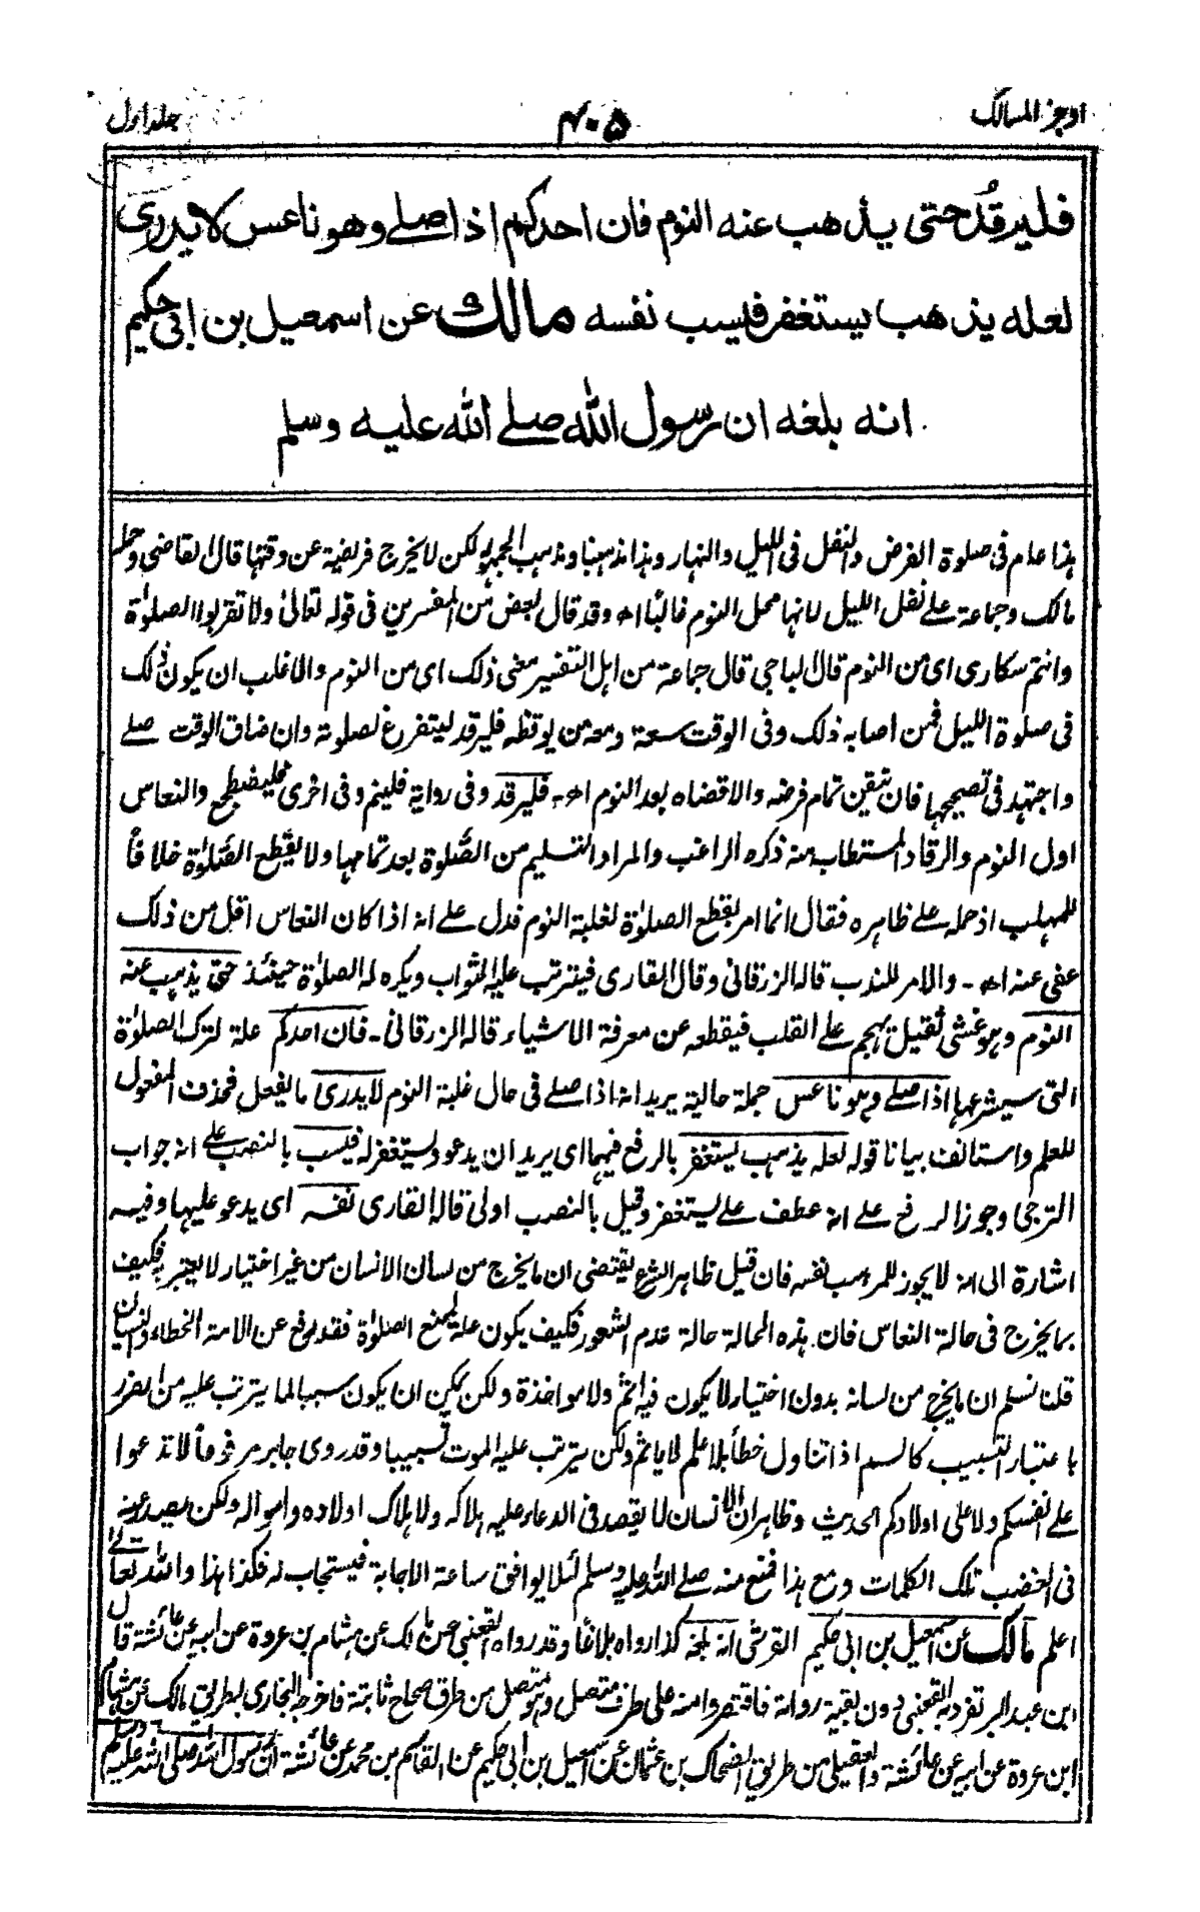 اوجز المسالك
۴۰۵
جلد اول
فليرقد حتى يذهب عنه النوم فان احدكم اذا صلے وهو ناعس لا يدرى
لعله يذهب يستغفر فيسب نفسه مالك عن اسمعيل بن ابى حكيم
انه بلغه ان رسول الله صلے الله عليه وسلم
هذا عام فى صلوة الفرض والنفل فى الليل والنهار وهذا مذهبنا ومذهب الجمهور لكن لا يخرج فريضة عن وقتها قال القاضى وحمله
مالك وجماعة علے نفل الليل لانها محل النوم غالبًا اھ وقد قال بعض من المفسرين فى قوله تعالىٰ ولا تقربوا الصلوٰة
وانتم سكارى اى من النوم قال الباجى قال جماعة من اهل التفسير معنى ذلك اى من النوم والاغلب ان يكون ذلك
فى صلوة الليل فمن اصابه ذلك وفى الوقت سعة ومعه من يوقظه فليرقد ليتفرغ لصلوته وان ضاق الوقت صلے
واجتهد فى تصحيحها فان تيقن تمام فرضه والا قضاه بعد النوم اھ۔ فليرقد وفى رواية فلينم وفى اخرى فليضطجع والنعاس
اول النوم والرقاد المستطاب منه ذكره الراغب والمراد التسليم من الصلوة بعد تمامها ولا يقطع الصلوٰة خلافًا
للمهلب اذ حمله علے ظاهره فقال انما امر بقطع الصلوٰة لغلبة النوم فدل علے انه اذا كان النعاس اقل من ذلك
عفى عنه اھ۔ والامر للندب قاله الزرقانى وقال القارى فيترتب عليه الثواب ويكره له الصلوٰة حينئذ حتى يذهب عنه
النوم وهو غشى ثقيل يهجم علے القلب فيقطعه عن معرفة الاشياء قاله الزرقانى۔ فان احدكم علة لترك الصلوٰة
التى سيشرعها اذا صلے وهو ناعس جملة حالية يريد انه اذا صلے فى حال غلبة النوم لا يدرى ما يفعل فحذف المفعول
للعلم واستانف بيانا قوله لعله يذهب يستغفر بالرفع فيهما اى يريد ان يدعو ويستغفر له فيسب بالنصب علے انه جواب
الترجى وجوز الرفع علے انه عطف علے يستغفر وقيل بالنصب اولى قاله القارى نفسه اى يدعو عليها وفيه
اشارة الى انه لا يجوز للمرء سب نفسه فان قيل ظاهر الشرع يقتضى ان ما يخرج من لسان الانسان من غير اختيار لا يعتبر به فكيف
بما يخرج فى حالة النعاس فان هذه الحالة حالة عدم الشعور فكيف يكون علة لمنع الصلوٰة فقد رفع عن الامة الخطاء والنسيان
قلنا نسلم ان ما يخرج من لسانه بدون اختيار لا يكون فيه اثم ولا مواخذة ولكن يمكن ان يكون سببا لما يترتب عليه من الضرر
باعتبار التسبيب كالسم اذا تناول خطأ بلا علم لا ياثم ولكن يترتب عليه الموت تسبيبا وقد روى جابر مرفوعًا لا تدعوا
علے انفسكم ولا على اولادكم الحديث وظاهر ان الانسان لا يقصد فى الدعاء عليه هلاكه ولا هلاك اولاده وامواله ولكن يصدر عنه
فى الغضب تلك الكلمات ومع هذا فمنع منه صلے الله عليه وسلم لئلا يوافق ساعة الاجابة فيستجاب له فكذا هذا والله تعالےٰ
اعلم مالك عن اسمعيل بن ابى حكيم القرشى انه بلغه كذا رواه بلاغًا وقد رواه القعنبى عن مالك عن هشام بن عروة عن ابيه عن عائشة قال
ابن عبد البر تفرد به القعنبى دون بقية رواته فاقتصروا منه على طرف متصل وهو متصل من طرق صحاح ثابتة فاخرجه البخارى بطريق مالك عن هشام
ابن عروة عن ابيه عن عائشة والعقيلى من طريق الضحاك بن عثمان عن اسمعيل بن ابى حكيم عن القاسم بن محمد عن عائشة ان رسول الله صلى الله عليه وسلم